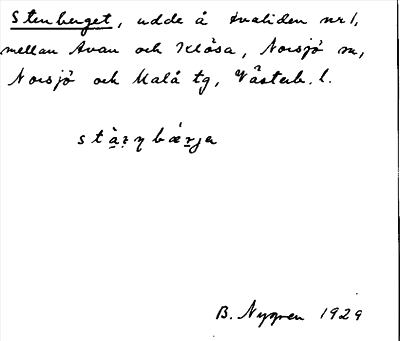 Stenberget, udde å Avaliden nr 1,
mellan Avan och Klösa, Norsjö sn,
Norsjö och Malå tg, Västerb. l.
stὰ̱ṛƞbǽṟjɐ
B. Nygren 1929